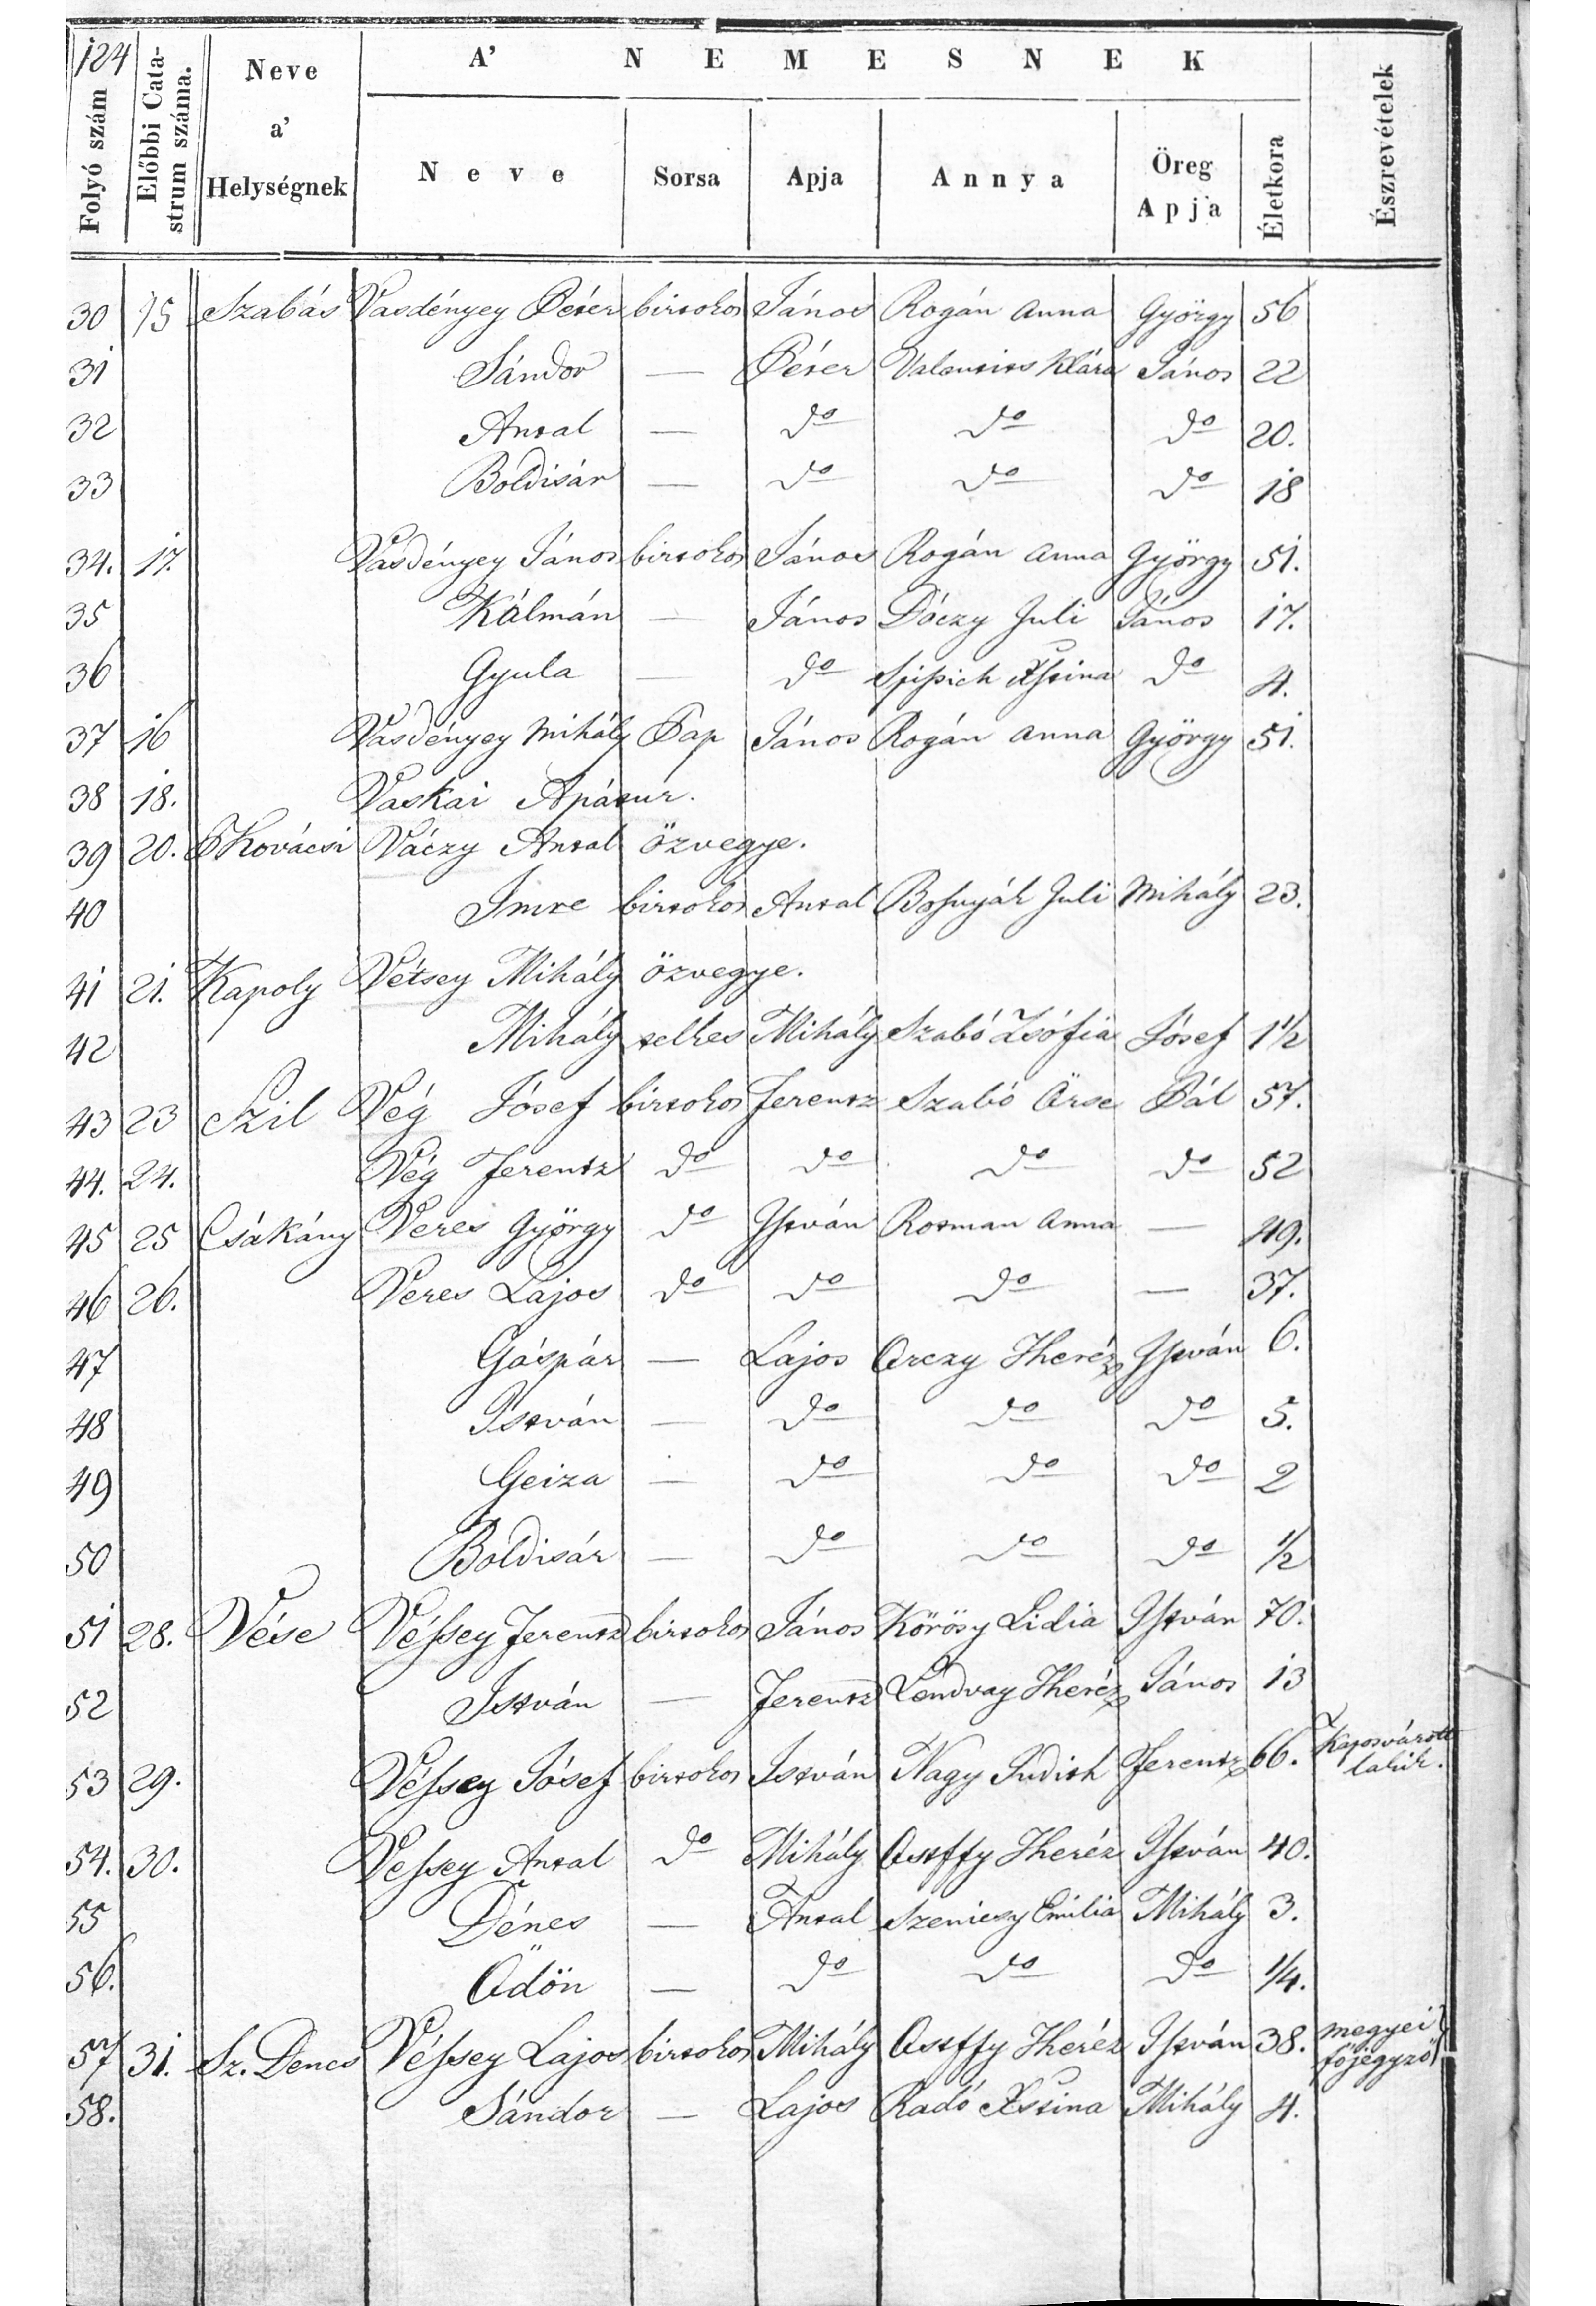 124
Folyó szám | Előbbi Catastrum száma. | Neve a' Helységnek | A' NEMESNEK | Észrevételek
Neve | Sorsa | Apja | Annya | Öreg Apja | Életkora
30 15 Szabás Vasdényey Péter birtokos János Rogán Anna György 56
31 Sándor — Péter Valentits Klára János 22
32 Antal — do do do 20.
33 Boldisár — do do do 18
34. 17. Vasdényey János birtokos János Rogán Anna György 51.
35 Kálmán — János Dóczy Juli János 17.
36 Gyula — do Spissich Xstina do 4.
37 16 Vasdényey Mihály Pap János Rogán Anna György 51.
38 18. Vaskai Apátur.
39 20. P Kovácsi Váczy Antal özvegye.
40 Imre birtokos Antal Bosnyák Juli Mihály 23.
41 21. Kapoly Vétsey Mihály özvegye.
42 Mihály telkes Mihály Szabó Zsófia Jósef 1½
43 23 Szil Vég Jósef birtokos Ferentz Szabó Örse Pál 57.
44. 24. Vég Ferentz do do do do 52
45 25 Csákány Veres György do István Rotman Anna — 49.
46 26. Veres Lajos do do do — 37.
47 Gáspár — Lajos Orczy Theréz István 6.
48 István — do do do 5.
49 Geiza — do do do 2
50 Boldisár — do do do ½
51 28. Vése Véssey Ferentz birtokos János Körösy Lidia István 70.
52 István — Ferentz Lendvay Theréz János 13
53 29. Véssey Jósef birtokos István Nagy Judith Ferentz 66. Kaposvárott lakik.
54. 30. Vessey Antal do Mihály Ostffy Theréz István 40.
55 Dénes — Antal Szenicsy Emilia Mihály 3.
56. Ödön — do do do ¼.
57 31. Sz. Denes Véssey Lajos birtokos Mihály Ostffy Theréz István 38. megyei főjegyző
58. Sándor — Lajos Radó Xstina Mihály 4.